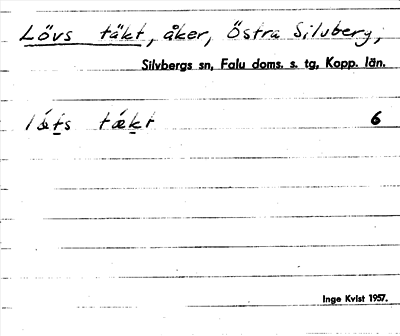 Lövs täkt, åker, Östra Silvberg,
Silvbergs sn, Falu doms. s. tg, Kopp. län.
lǽt̠s tǽk̠t 6
Inge Kvist 1957.